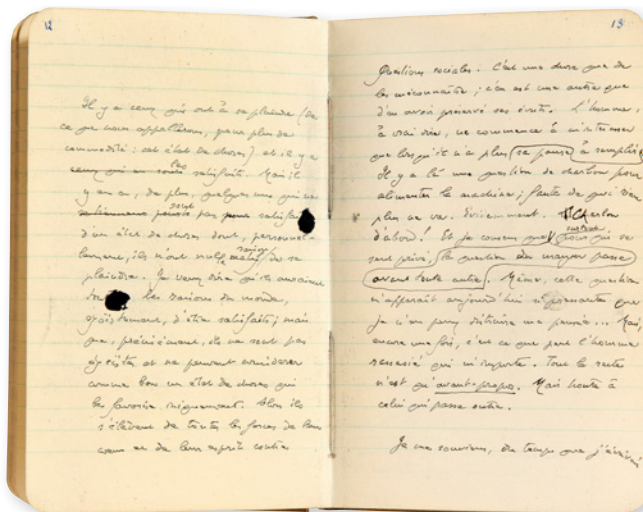 12
Il y a ceux qui ont à se plaindre (de
ce que nous appellerons, pour plus de
commodité : cet état de choses) et il y a
ceux qui en sont les satisfaits. Mais il
y en a, de plus, quelques uns qui ne
sont pas satisfaits
d'un état de choses dont, personnel-
lement, ils n'ont nulle raison de se
plaindre. Je veux dire qu'ils auraient
les raisons du monde,
égoïstement, d'être satisfaits ; mais
que, précisément, ils ne sont pas
égoïstes et ne peuvent considérer
comme bon un état de choses qui
les favorise iniquement. Alors ils
s'élèvent de toutes les forces de leur
cœur et de leur esprit contre
13
Questions sociales. C'est une chose que de
les méconnaître ; c'en est une autre que
d'en avoir préservé ses écrits. L'homme,
à vrai dire, ne commence à m'intéresser
que lorsqu'il n'a plus sa panse à remplir.
Il y a là une question de charbon pour
alimenter la machine ; faute de quoi rien
plus ne va. Évidemment. Charbon
d'abord ! Et je conçois que pour qui se
surtout
sent privé, la question du manger passe
avant toute autre. Même, cette question
m'apparaît aujourd'hui si prenante que
je n'en puis distraire ma pensée... Mais,
encore une fois, c'est ce que peut l'homme
rassasié qui m'importe. Tout le reste
n'est qu'avant-propos. Mais honte à
celui qui passe outre.
Je me souviens, du temps que j'écrivais